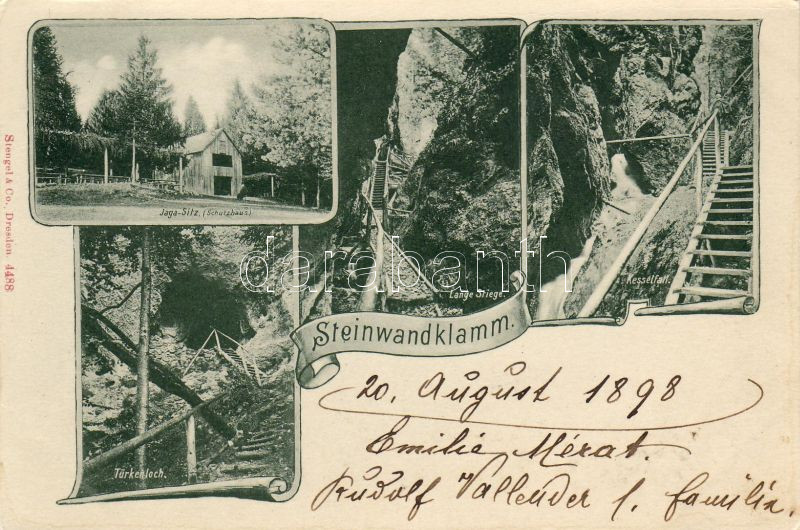 Stengel & Co., Dresden. 4488
Jaga-Sitz, (Schutzhaus)
Lange Stiege.
Kesselfall.
darabanth
Steinwandklamm.
Türkenloch.
20. August 1898
Emilie Mérat.
Rudolf Vallender s. familia.